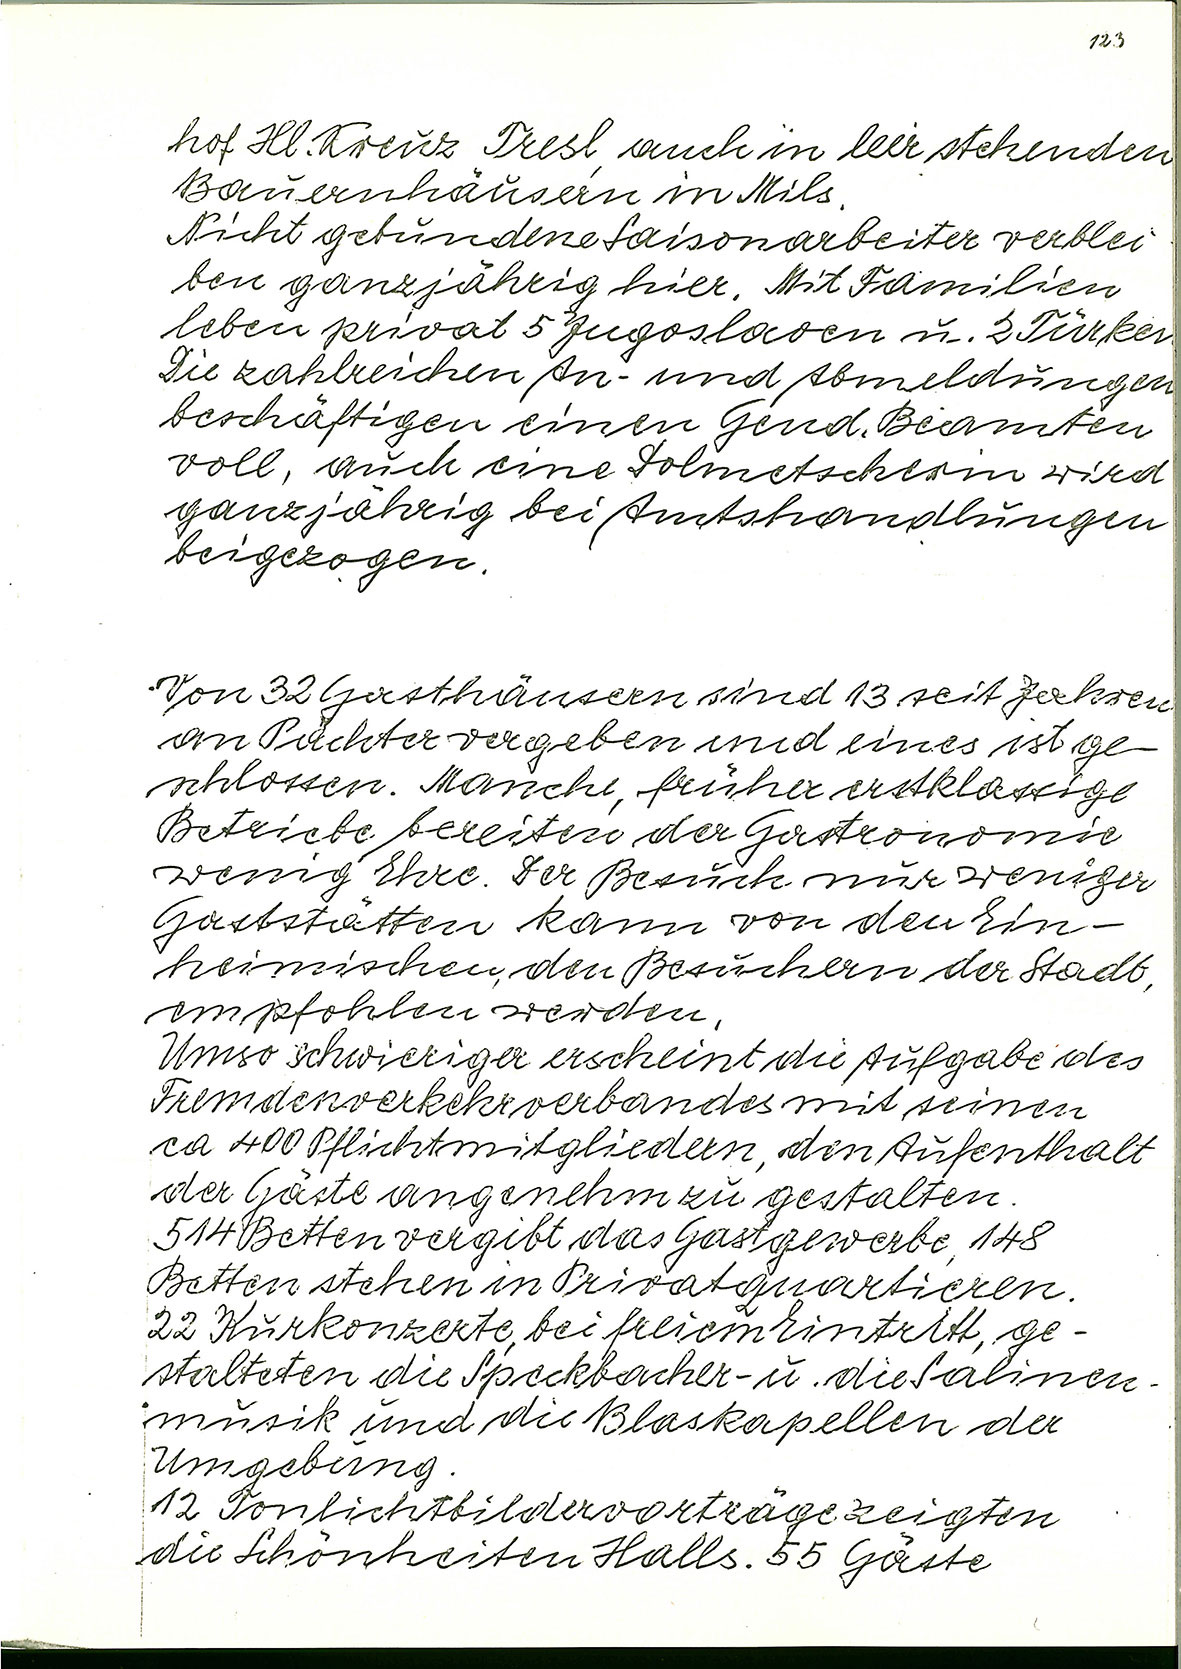 123
hof Hl. Kreuz Tresl, auch in leer stehenden
Bauernhäusern in Mils.
Nicht gebundene Saisonarbeiter verblei
ben ganzjährig hier. Mit Familien
leben privat 5 Jugoslaven u. 2 Türken
Die zahlreichen An- und Abmeldungen
beschäftigen einen Gend. Beamten
voll, auch eine Dolmetscherin wird
ganzjährig bei Amtshandlungen
beigezogen.
Von 32 Gasthäusern sind 13 seit Jahren
an Pächter vergeben und eines ist ge-
schlossen. Manche, früher erstklassige
Betriebe, bereiten der Gastronomie
wenig Ehre. Der Besuch nur weniger
Gaststätten kann von den Ein-
heimischen, den Besuchern der Stadt,
empfohlen werden.
Umso schwieriger erscheint die Aufgabe des
Fremdenverkehrverbandes mit seinen
ca 400 Pflichtmitgliedern, den Aufenthalt
der Gäste angenehm zu gestalten.
514 Betten vergibt das Gastgewerbe, 148
Betten stehen in Privatquartieren.
22 Kurkonzerte, bei freiem Eintritt, ge-
stalteten die Speckbacher- u. die Salinen-
musik und die Blaskapellen der
Umgebung.
12 Tonlichtbildervorträge zeigten
die Schönheiten Halls. 55 Gäste